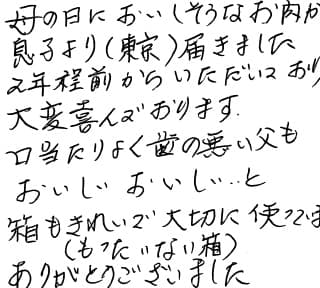 母の日に おいしそうなお肉が
息子より(東京)届きました
2年程前から いただいており
大変喜んでおります.
口当たりよく歯の悪い父も
おいしい おいしい‥と
箱もきれいで大切に使ってい
(もったいない箱)
ありがとうございました